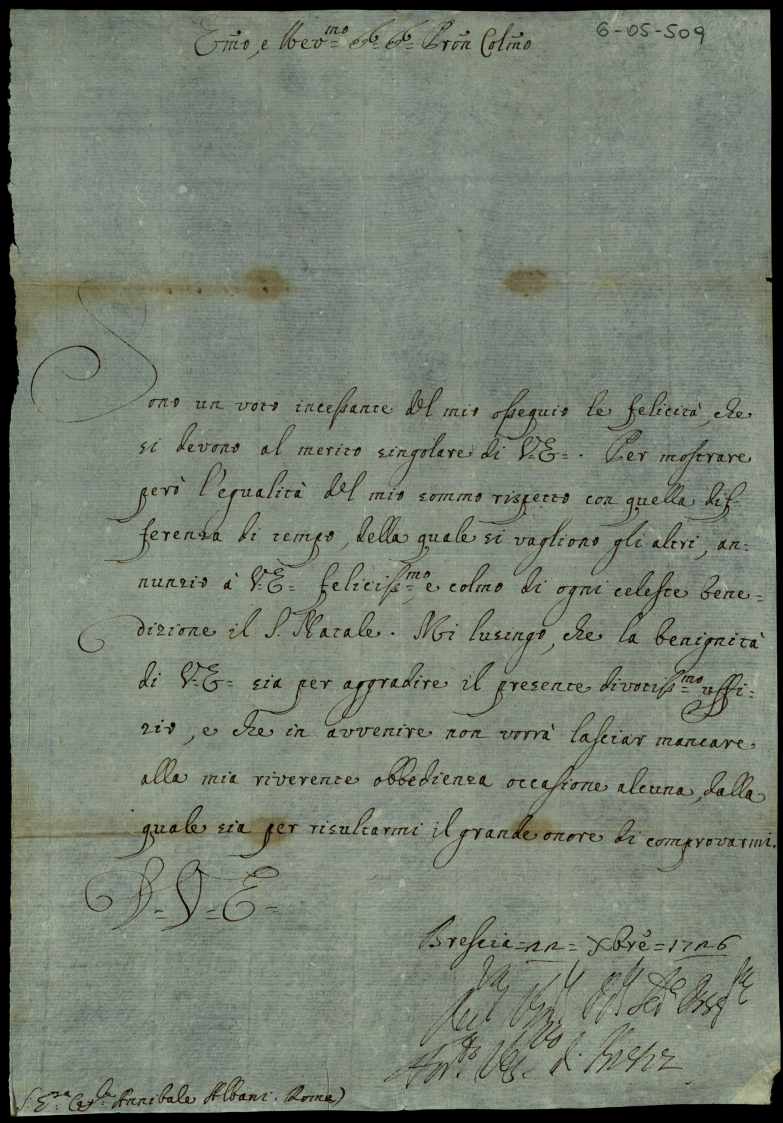 6-05-509
Em̃o, e Rev.mo Sig.r Sig.r Pron̄ Colm̃o
Sono un voto incessante del mio ossequio le felicità, che
si devono al merito singolare di V.E. Per mostrare
però l'egualità del mio sommo rispetto con quella dif-
ferenza di tempo, della quale si vagliono gli altri, an-
nunzio à V.E. feliciss.mo, e colmo di ogni celeste bene-
dizione il S. Natale. Mi lusingo, che la benignità
di V.E. sia per aggradire il presente divotiss.mo uffi-
zio, e che in avvenire non vorrà lasciar mancare
alla mia riverente obbedienza occasione alcuna, dalla
quale sia per risultarmi il grande onore di comprovarmi.
D. V. E.
Brescia 22 Xbre 1726
Vesc.vo di Bresc.a
S. E.za Card.le Annibale Albani. Roma)